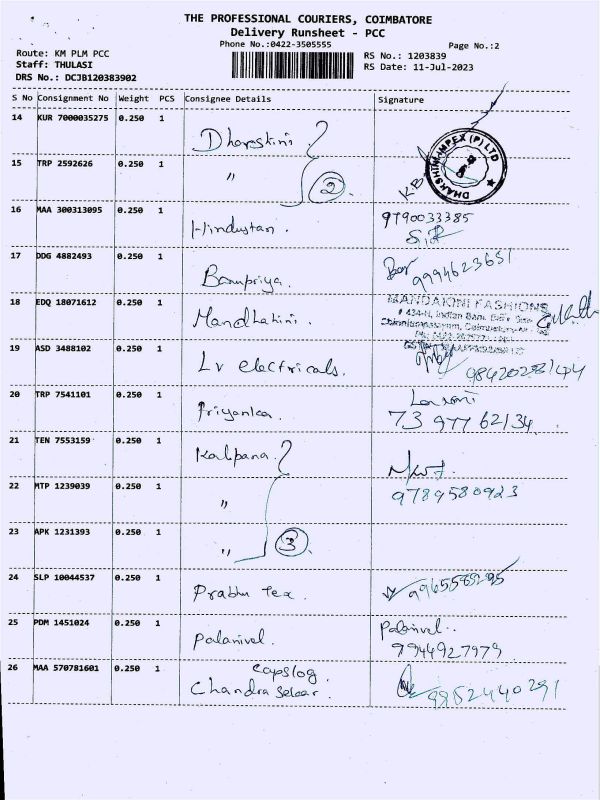 THE PROFESSIONAL COURIERS, COIMBATORE
Delivery Runsheet - PCC
Phone No.:0422-3505555
Page No.:2
Route: KM PLM PCC
RS No.: 1203839
Staff: THULASI
RS Date: 11-Jul-2023
DRS No.: DCJB120383902
S No Consignment No Weight PCS Consignee Details Signature
14 KUR 7000035275 0.250 1
DHARSHINI IMPEX (P) LTD
15 TRP 2592626 0.250 1 " 2 K.B.
16 MAA 300313095 0.250 1 Hindustan. 9790033385
17 DDG 4882493 0.250 1 9994623651
18 EDQ 18071612 0.250 1 MANDAKINI FASHIONS
# 434-H, Indian Bank
19 ASD 3488102 0.250 1 Lv electricals.
20 TRP 7541101 0.250 1 Priyanka. 73 977 62134
21 TEN 7553159 0.250 1 Kalpana.
22 MTP 1239039 0.250 1 " 9789580923
23 APK 1231393 0.250 1 " 3
24 SLP 10044537 0.250 1 Prabhu Tex. 9965589295
25 PDM 1451024 0.250 1 Palanivel. Palanivel.
9944927979
26 MAA 570781601 0.250 1 capslog
Chandra Sekar. 9952440291